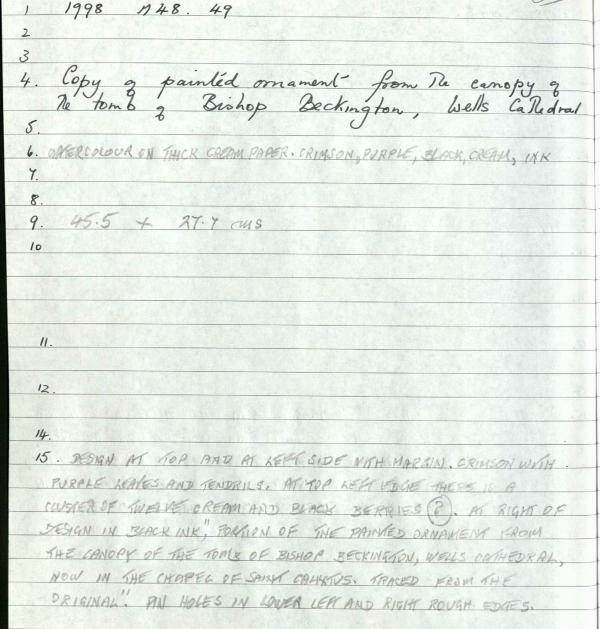 1 1998 M48. 49
2
3
4. Copy of painted ornament from the canopy of
the tomb of Bishop Beckington, Wells Cathedral
5.
6. WATERCOLOUR ON THICK CREAM PAPER. CRIMSON, PURPLE, BLACK, CREAM, INK
7.
8.
9. 45.5 + 27.7 cms
10
11.
12.
14.
15. DESIGN AT TOP AND AT LEFT SIDE WITH MARGIN. CRIMSON WITH
PURPLE LEAVES AND TENDRILS. AT TOP LEFT EDGE THERE IS A
CLUSTER OF TWELVE CREAM AND BLACK BERRIES (?). AT RIGHT OF
DESIGN IN BLACK INK, "PORTION OF THE PAINTED ORNAMENT FROM
THE CANOPY OF THE TOMB OF BISHOP BECKINGTON, WELLS CATHEDRAL,
NOW IN THE CHAPEL OF SAINT CALIXTUS. TRACED FROM THE
ORIGINAL". PIN HOLES IN LOWER LEFT AND RIGHT ROUGH EDGES.